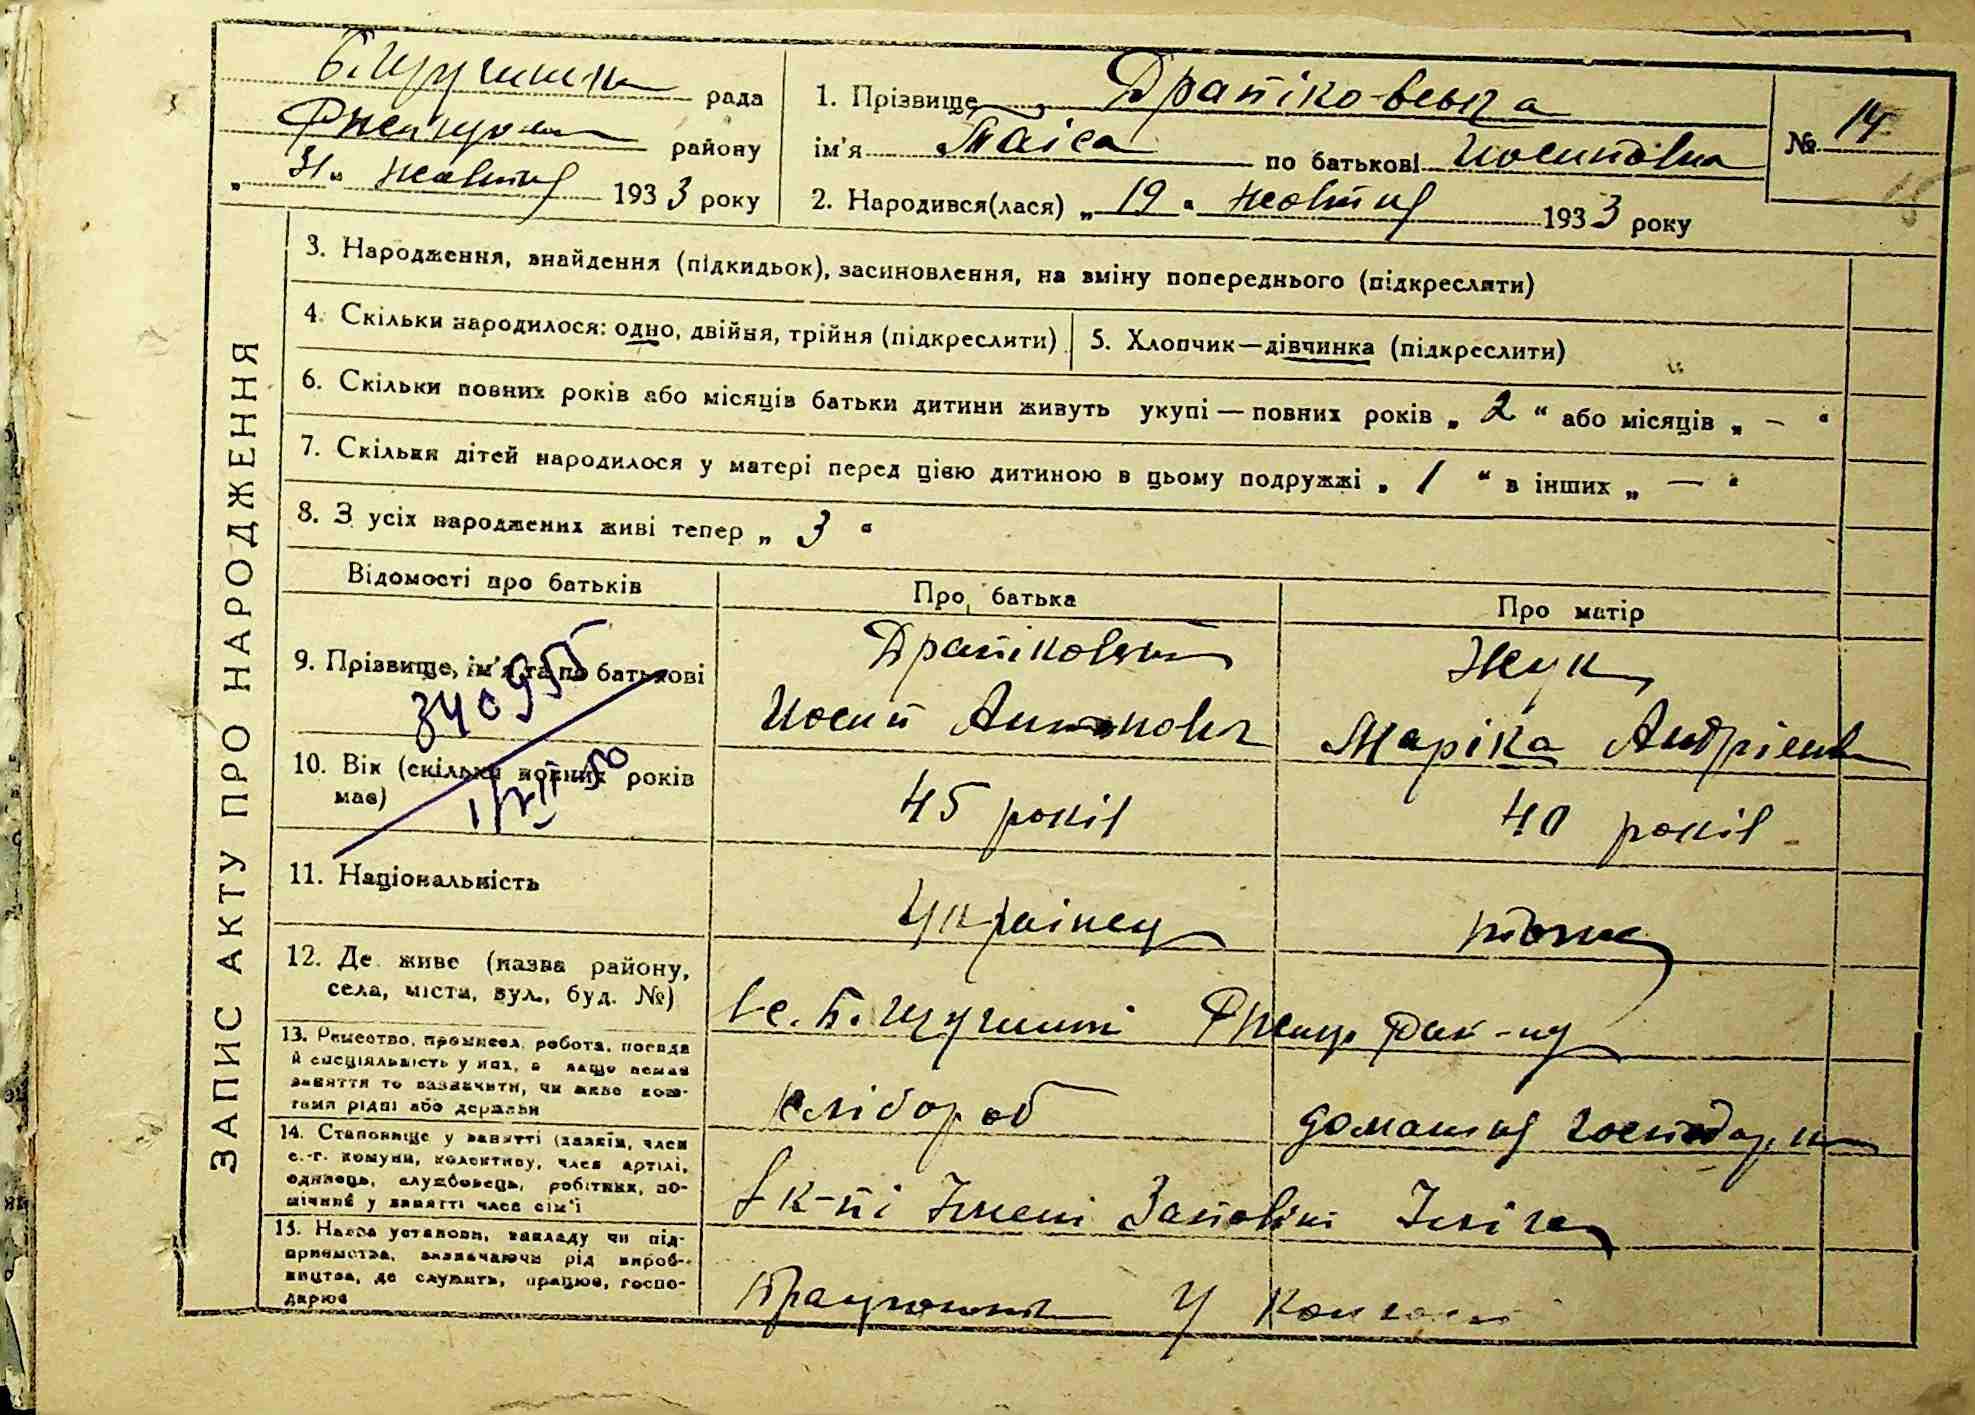 Б. Щучинка рада
району
жовтня 1933 року
1. Прізвище Драпіковська
ім'я Таіса по батькові Иосиповна
2. Народився(лася) „ 19 “ жовтня 1933 року
№ 14
ЗАПИС АКТУ ПРО НАРОДЖЕННЯ
3. Народження, знайдення (підкидьок), засиновлення, на зміну попереднього (підкреслити)
4. Скільки народилося: одно, двійня, трійня (підкреслити)
5. Хлопчик—дівчинка (підкреслити)
6. Скільки повних років або місяців батьки дитини живуть укупі — повних років „ 2 “ або місяців „ – “
7. Скільки дітей народилося у матері перед цією дитиною в цьому подружжі „ 1 “ в інших „ — “
8. З усіх народжених живі тепер „ 3 “
Відомості про батьків
Про батька
Про матір
9. Прізвище, ім'я та по батькові
Драпіковський
Иосип Антонович
Жук
Маріка Андріевна
10. Вік (скільки повних років
має)
45 років
40 років
11. Національність
Украінец
12. Де живе (назва району,
села, міста, вул., буд. №)
в с. Б. Щучинці Ржищ. рай-ну
13. Ремество, промисел, робота, посада
й спеціяльність у них, а якщо немає
заняття то зазначити, чи живе кош-
тами рідні або держави
хлібороб
домашня господарка
14. Становище у занятті (хазяїн, член
с.-г. комуни, колективу, член артілі,
одинець, службовець, робітник, по-
мічник у занятті член сім'ї
в к-пі Імені Заповіт Ілліча
15. Назва установи, закладу чи під-
приємства, зазначаючи рід вироб-
ництва, де служить, працює, госпо-
дарює
Працюють у колгоспі